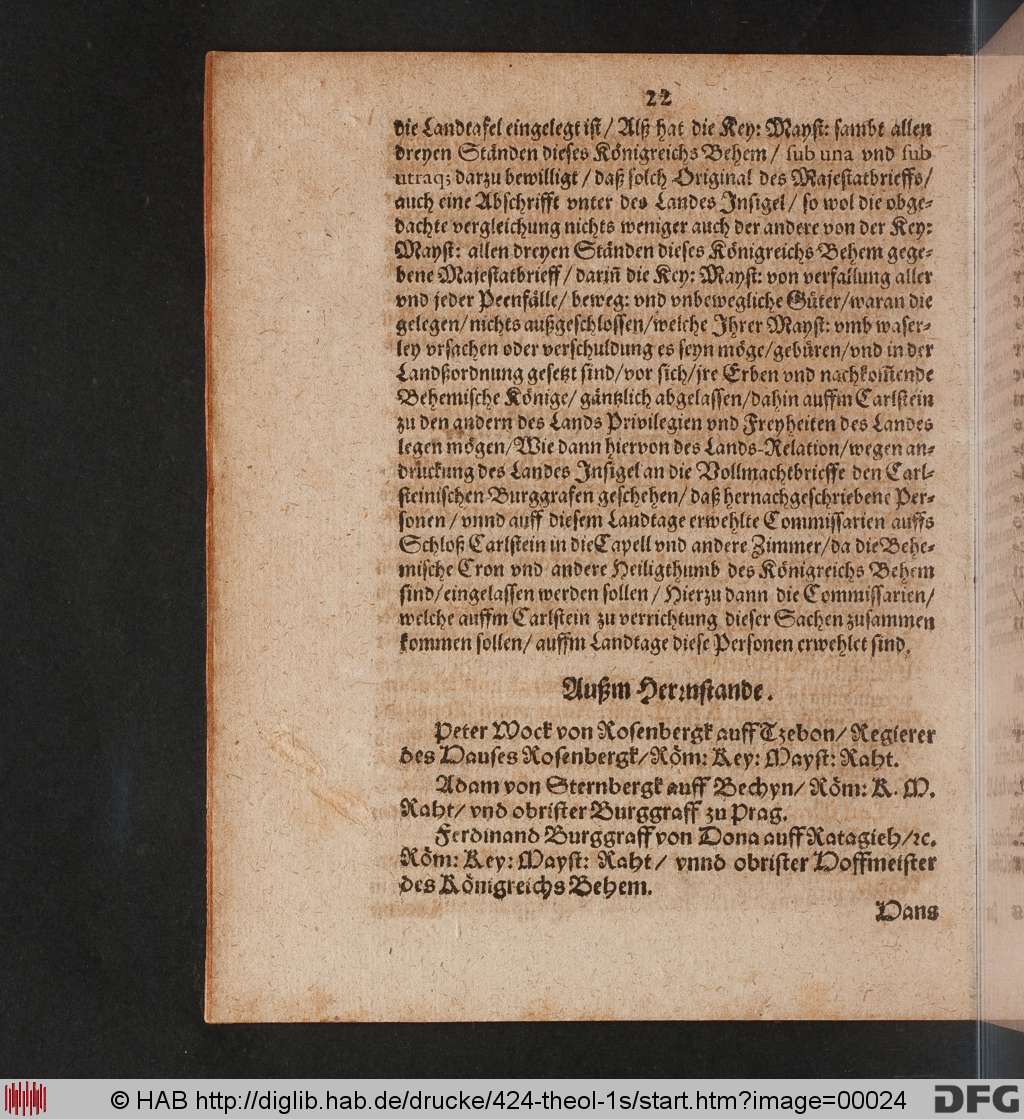 22
die Landtafel eingelegt ist / Alß hat die Key: Mayst: sambt allen
dreyen Ständen dieses Königreichs Behem / sub una vnd sub
utraq; darzu bewilligt / daß solch Original des Majestatbrieffs /
auch eine Abschrifft vnter des Landes Insigel / so wol die obge-
dachte vergleichung nichts weniger auch der andere von der Key:
Mayst: allen dreyen Ständen dieses Königreichs Behem gege-
bene Majestatbrieff / dariñ die Key: Mayst: von verfallung aller
vnd jeder Peenfälle / beweg: vnd vnbewegliche Güter / waran die
gelegen / nichts außgeschlossen / welche Ihrer Mayst: vmb waser-
ley vrsachen oder verschuldung es seyn möge / gebüren / vnd in der
Landßordnung gesetzt sind / vor sich / jre Erben vnd nachkom̃ende
Behemische Könige / gäntzlich abgelassen / dahin auffm Carlstein
zu den andern des Lands Privilegien vnd Freyheiten des Landes
legen mögen / Wie dann hiervon des Lands-Relation / wegen an-
drückung des Landes Insigel an die Vollmachtbrieffe den Carl-
steinischen Burggrafen geschehen / daß hernachgeschriebene Per-
sonen / vnnd auff diesem Landtage erwehlte Commissarien auffs
Schloß Carlstein in die Capell vnd andere Zimmer / da die Behe-
mische Cron vnd andere Heiligthumb des Königreichs Behem
sind / eingelassen werden sollen / Hierzu dann die Commissarien /
welche auffm Carlstein zu verrichtung dieser Sachen zusammen
kommen sollen / auffm Landtage diese Personen erwehlet sind.
Außm Herrnstande.
Peter Wock von Rosenbergk auff Tzebon / Regierer
des Hauses Rosenbergk / Röm: Key: Mayst: Raht.
Adam von Sternbergk auff Bechyn / Röm: K. M.
Raht / vnd obrister Burggraff zu Prag.
Ferdinand Burggraff von Dona auff Ratagieh / ꝛc.
Röm: Key: Mayst: Raht / vnnd obrister Hoffmeister
des Königreichs Behem.
Hans
© HAB http://diglib.hab.de/drucke/424-theol-1s/start.htm?image=00024
DFG